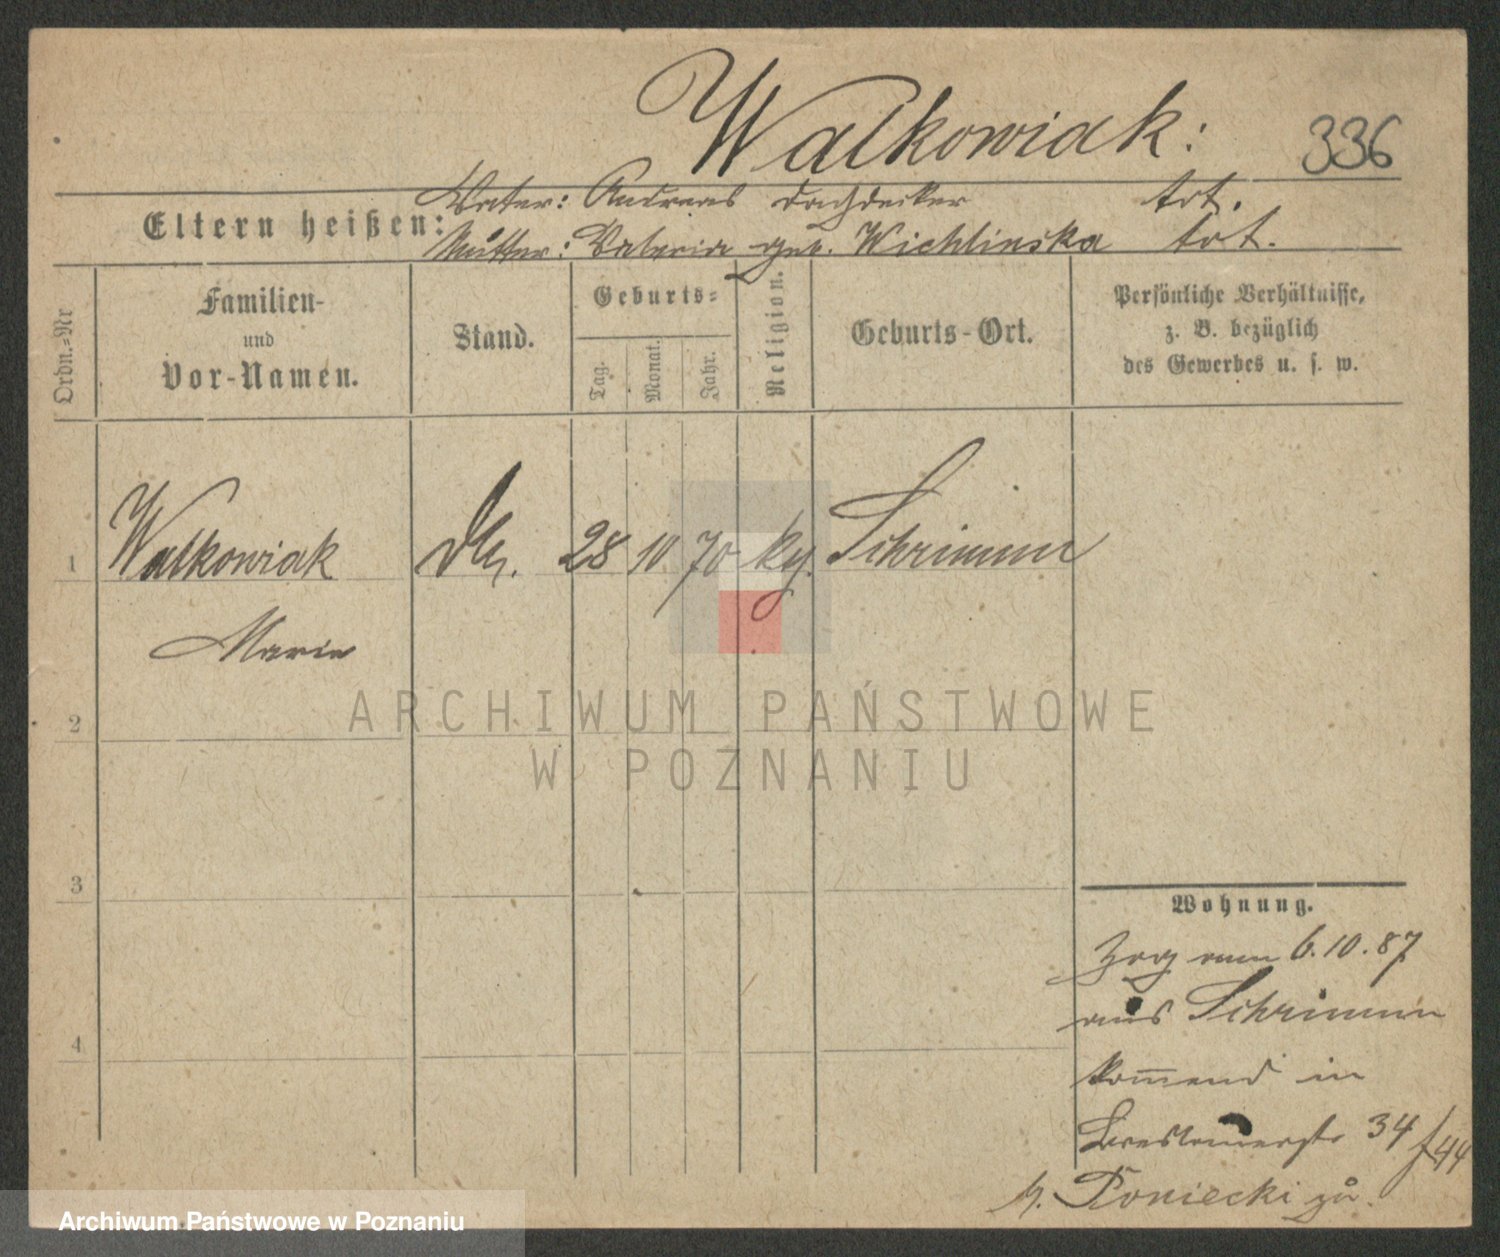 Walkowiak: 336
Eltern heißen: Vater: Andreas Dachdecker tot.
Mutter: Valeria geb. Wichlinska tot.
Ordn.-Nr
Familien-
und
Vor-Namen.
Stand.
Geburts-
Tag.
Monat.
Jahr.
Religion.
Geburts-Ort.
Persönliche Verhältnisse,
z. B. bezüglich
des Gewerbes u. s. w.
1 Walkowiak 28 10 70 Schrimm
Marie
2
3
4
Wohnung.
Zog am 6.10.87
aus Schrimm
kommend in
Breslauerstr 34/44
b. Poniecki zu.
ARCHIWUM PAŃSTWOWE
W POZNANIU
Archiwum Państwowe w Poznaniu